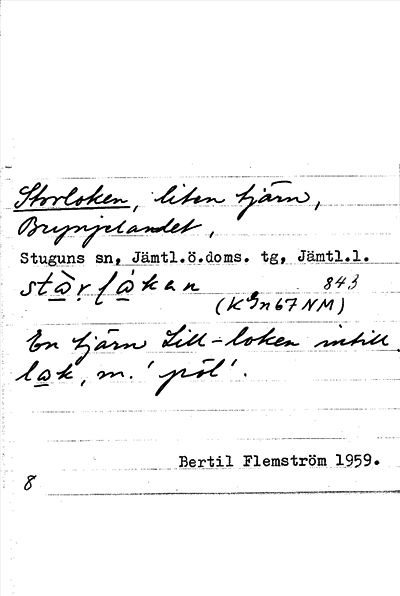 Storloken, liten tjärn,
Brynjelandet,
Stuguns sn, Jämtl.ö.doms. tg, Jämtl.l.
843
En tjärn Lill-loken intill.
lak, m. 'pöl'.
Bertil Flemström 1959.
8